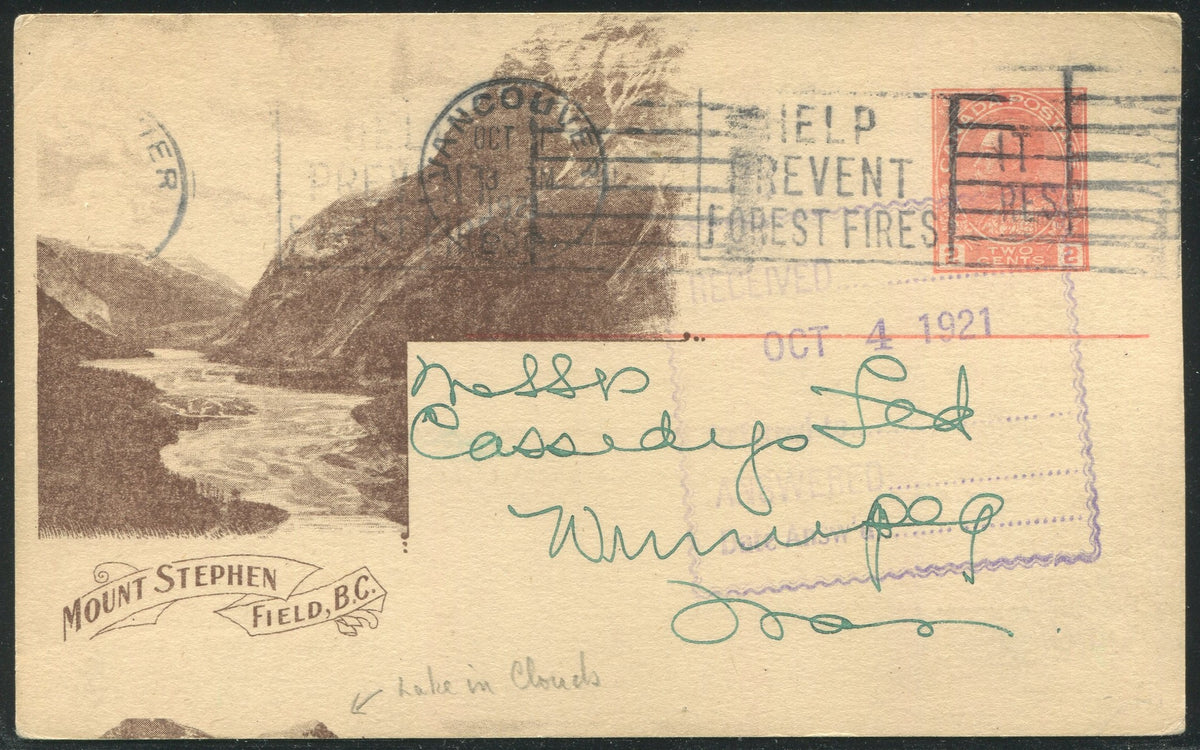 VANCOUVER
OCT
HELP
PREVENT
FOREST FIRES
CANADA POSTAGE
2 TWO CENTS 2
RECEIVED
OCT 4 1921
Messrs
Cassidys Ltd
ANSWERED
Winnipeg
Man
MOUNT STEPHEN
FIELD, B.C.
Lake in Clouds